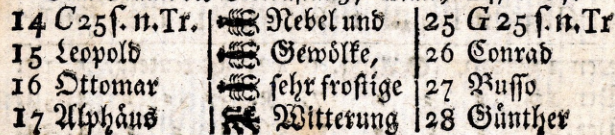 14 C25ſ. n. Tr. Nebel und 25 G 25 ſ. n. Tr
15 Leopold Gewölke, 26 Conrad
16 Ottomar ſehr froſtige 27 Buſſo
17 Alphäus Witterung 28 Günther